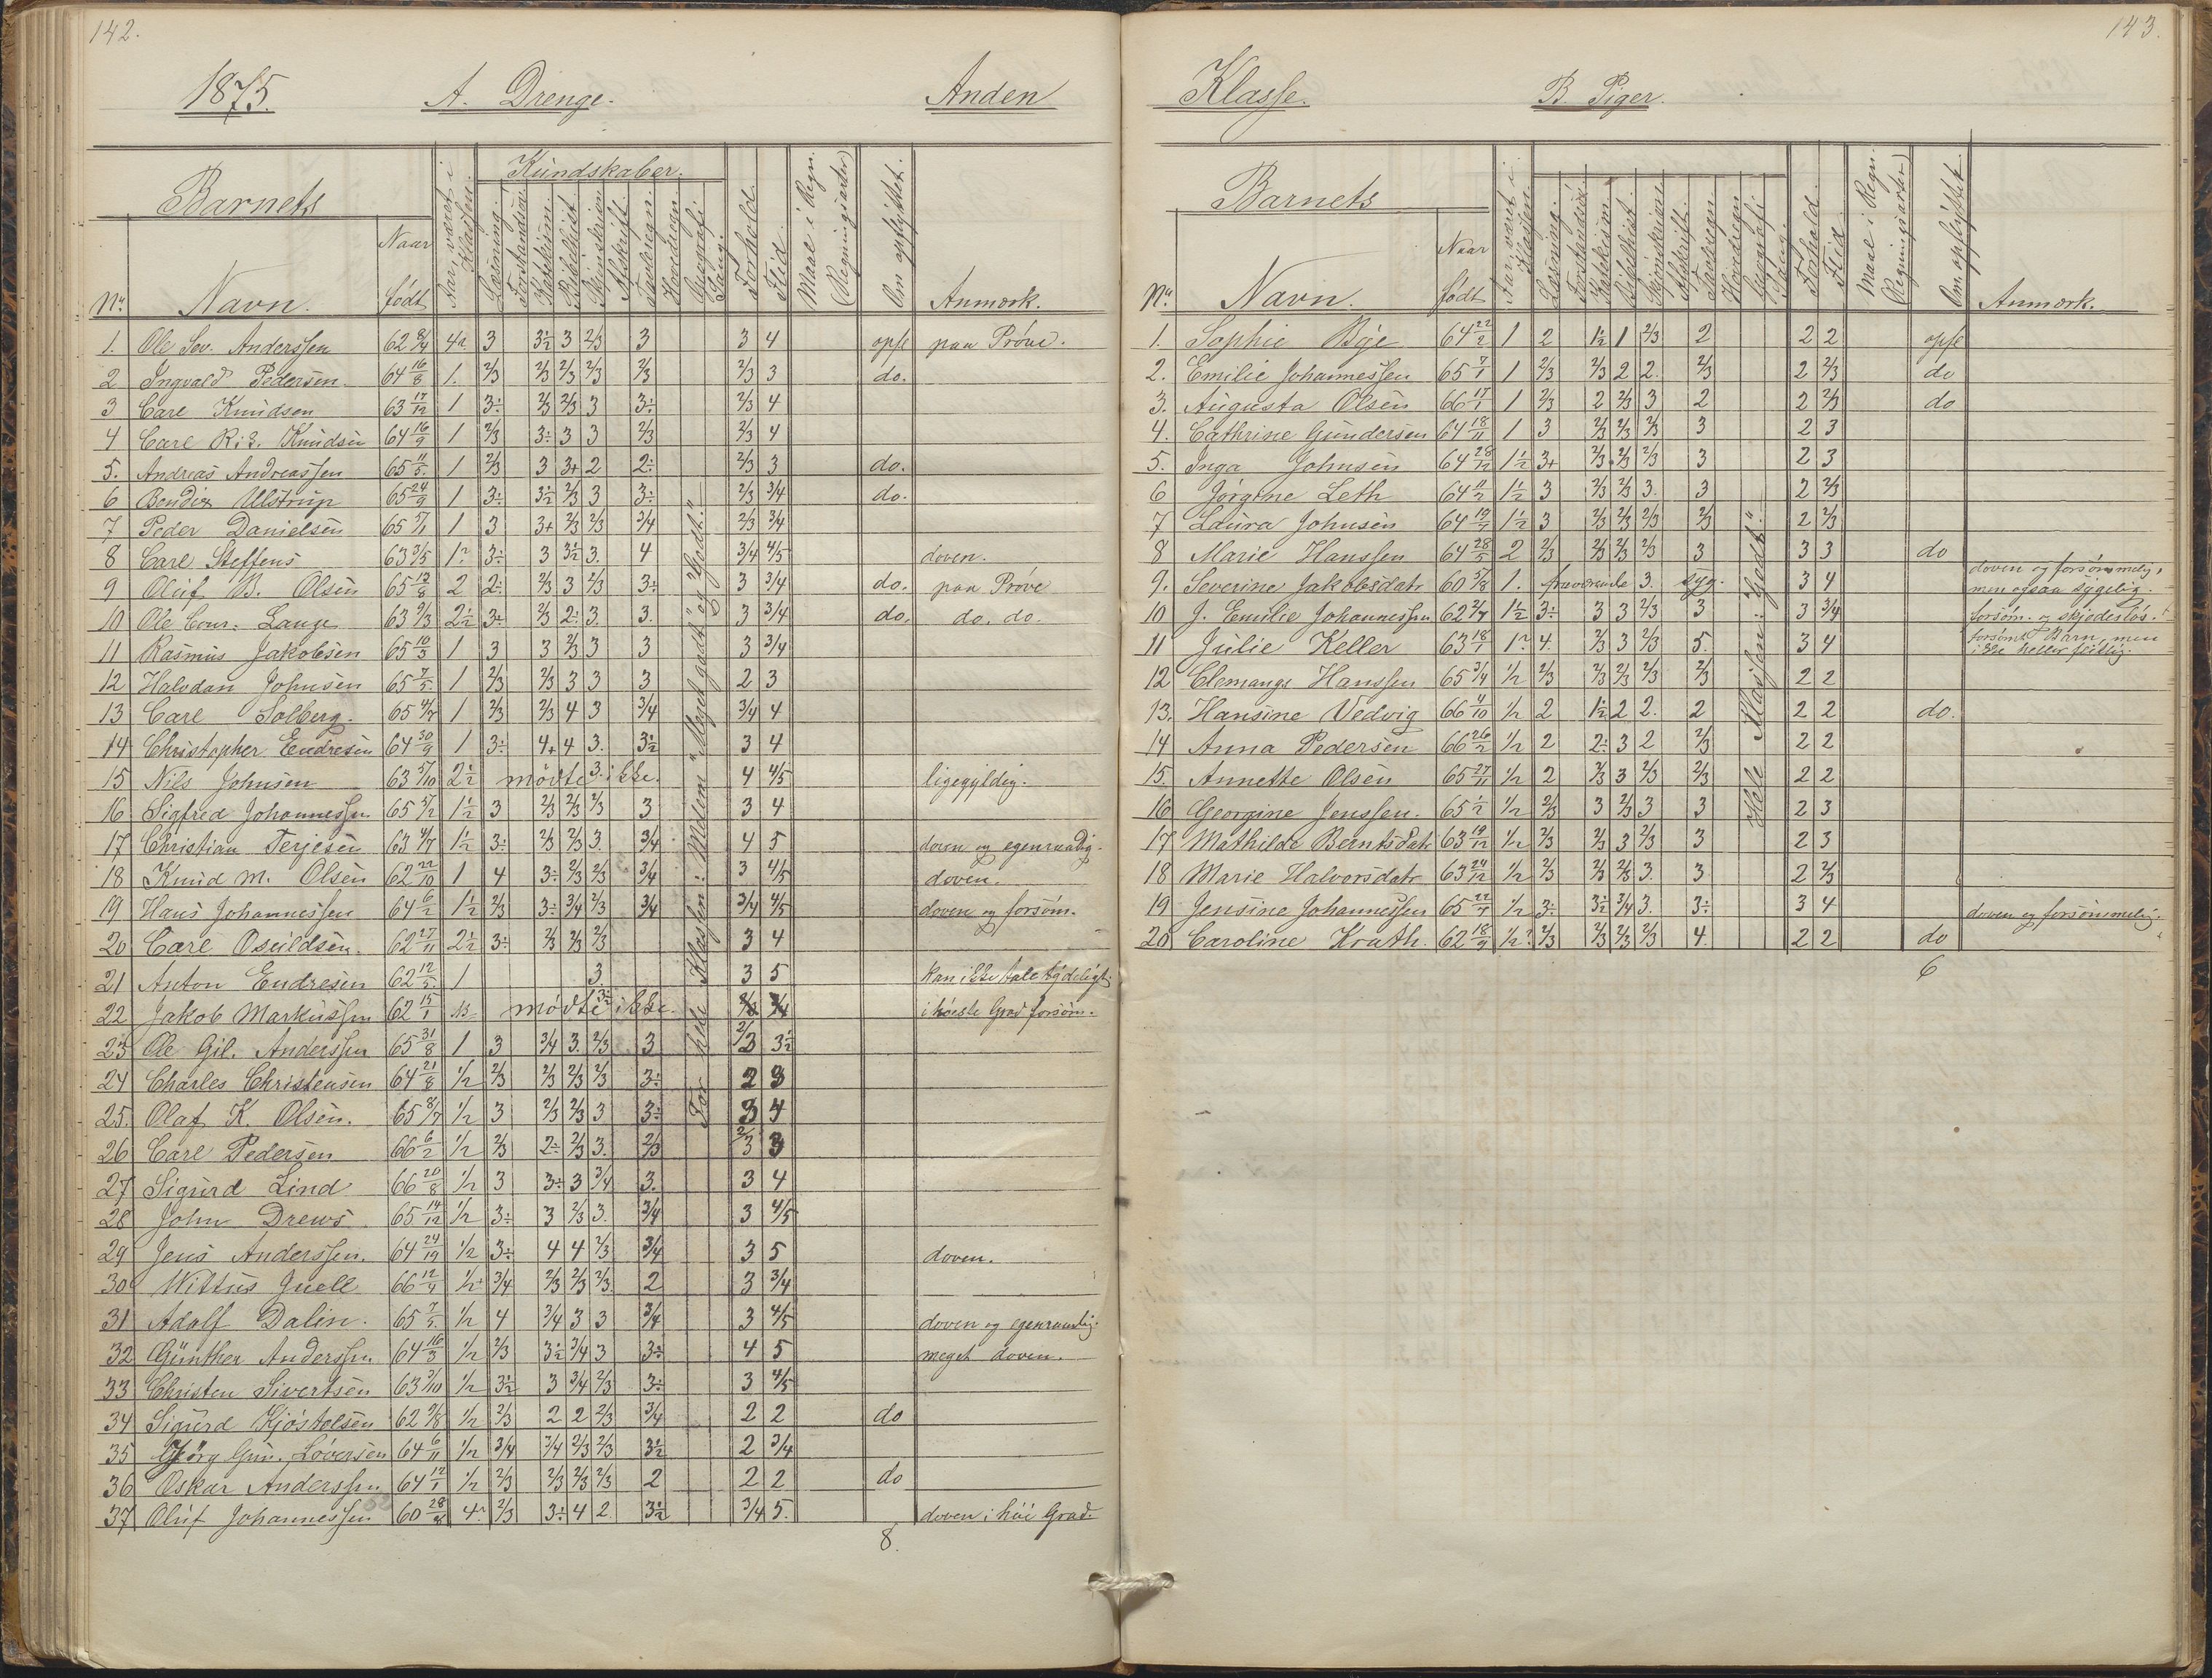 142.
1875. A. Drenge. Anden
Barnets Aar, været i Klassen. Kundskaber. Forhold. Flid. Maal i Regn. (Regningsarter) Om opflyttet.
Læsning. Forstandsøv. Katekism. Bibelhist. Skjønskriv. Afskrift. Tavleregn. Hovedregn. Geografi Sang.
Nr. Navn. Naar født Anmærk.
1. Ole Sev. Anderssen 62 8/4 4a. 3 3½ 3 2/3 3 3 4 opfl paa Prøve.
2 Ingvald Pedersen. 64 16/8 1. 2/3 2/3 2/3 2/3 2/3 2/3 3 do.
3 Carl Knudsen 63 17/12 1 3÷ 2/3 2/3 3 3÷ 2/3 4
4 Carl R. E. Knudsen 64 16/9 1 2/3 3÷ 3 3 2/3 2/3 4
5. Andreas Andreassen 65 11/5 1 2/3 3 3+ 2 2÷ 2/3 3 do.
6 Bendix Ulstrup 65 24/9 1 3÷ 3½ 2/3 3 3÷ 2/3 3/4 do.
7 Peder Danielsen 65 5/1 1 3 3+ 2/3 2/3 3/4 2/3 3/4
8 Carl Steffens 63 3/5 1? 3÷ 3 3½ 3. 4 3/4 4/5 doven.
9 Oluf B. Olsen 65 12/8 2 2÷ 2/3 3 2/3 3÷ 3 3/4 do. paa Prøve
10 Ole Conr. Lange 63 9/3 2½ 3+ 2/3 2÷ 3. 3. 3 3/4 do. do. do.
11 Rasmus Jakobsen 65 10/3 1 3 3 2/3 3 3 3 3/4
12 Halvdan Johnsen 65 7/5 1 2/3 2/3 3 3 3 2 3
13 Carl Solberg. 65 4/7 1 2/3 2/3 4 3 3/4 3/4 4
14 Christopher Endresen 64 30/9 1 3÷ 4+ 4 3. 3½ 3 4
15 Nils Johnsen 63 5/10 2½ mødte 3. ikke. 4 4/5 ligegyldig.
16 Sigfred Johannessen 65 5/2 1½ 3 2/3 2/3 2/3 3 3 4
17 Christian Terjesen 63 4/7 1½ 3÷ 2/3 2/3 3. 3/4 4 5 doven og egenraadig.
18 Knud M. Olsen 62 22/10 1 4 3÷ 2/3 2/3 3/4 3 4/5 doven.
19 Hans Johannessen 64 6/2 1½ 2/3 3÷ 3/4 2/3 3/4 3/4 4/5 doven og forsøm.
20 Carl Osuldsen. 62 27/11 2½ 3÷ 2/3 2/3 2/3 3 4
21 Anton Endresen 62 12/5 1 3 3 5 kan ikke tale tydeligt.
22 Jakob Markussen 62 15/1 mødte 3½ ikke. i høieste Grad forsøm.
23 Ole Gil. Anderssen 65 31/8 1 3 3/4 3. 2/3 3 2/3 3½
24 Charles Christensen 64 21/8 1/2 2/3 2/3 2/3 2/3 3÷ 2 3
25. Olaf K. Olsen. 65 8/7 1/2 3 2/3 2/3 3 3÷ 3 4
26 Carl Pedersen 66 6/2 1/2 2/3 2÷ 2/3 3. 2/3 2/3 3
27 Sigurd Lind 66 20/8 1/2 3 3÷ 3 3/4 3. 3 4
28 John Drews 65 14/12 1/2 3÷ 3 2/3 3. 3/4 3 4/5
29 Jens Anderssen. 64 24/19 1/2 3÷ 4 4 2/3 3/4 3 5 doven.
30 Wittus Juell 66 12/4 1/2 3/4 2/3 2/3 2/3 2 3 3/4
31 Adolf Dalin. 65 7/5 1/2 4 3/4 3 3 3/4 3 4/5 doven og egenraadig.
32 Günther Anderssen 64 16/3 1/2 2/3 3½ 3/4 3 3÷ 4 5 meget doven.
33 Christen Sivertsen 63 3/10 1/2 3½ 3 3/4 2/3 3÷ 3 4/5
34 Sigurd Kjøstolsen 62 9/8 1/2 2/3 2 2 2/3 3/4 2 2 do
35 Georg Gun. Løversen 64 6/11 1/2 3/4 3/4 2/3 2/3 3½ 2 3/4
36 Oskar Anderssen 64 12/1 1/2 2/3 2/3 2/3 2/3 2 2 2 do
37 Oluf Johannessen 60 28/8 4? 2/3 3÷ 4 2 3½ 3/4 5. doven i høi Grad.
8.
For hele Klassen: Mellem "Meget godt" og "Godt."
143.
Klasse. B. Piger.
Barnets Aar, været i Klassen. Forhold. Flid Maal i Regn. (Regningsarter) Om opflyttet.
Læsning. Forstandsøv. Katekism. Bibelhist. Skjønskriv. Afskrift. Tavleregn. Hovedregn. Geografi Sang.
Nr. Navn. Naar født Anmærk.
1. Sophie Bøe 64 22/2 1 2 1½ 1 2/3 2 2 2 opfl
2. Emilie Johannessen 65 7/1 1 2/3 2/3 2 2. 2/3 2 2/3 do
3. Augusta Olsen 66 17/1 1 2/3 2 2/3 3 2 2 2/3 do
4. Cathrine Gundersen 64 18/11 1 3 2/3 2/3 2/3 3 2 3
5. Inga Johnsen 64 28/12 1½ 3+ 2/3 2/3 2/3 3 2 3
6 Jørgine Leth 64 11/2 1½ 3 2/3 2/3 3. 3 2 2/3
7 Laura Johnsen 64 19/7 1½ 3 2/3 2/3 2/3 2/3 2 2/3
8 Marie Hanssen 64 28/5 2 2/3 2/3 2/3 2/3 3 3 3 do
9. Severine Jakobsdatr 60 5/8 1. fraværende 3. syg. 3 4 doven og forsømmelig, men ogsaa sygelig.
10 J. Emilie Johannessen 62 2/7 1½ 3÷ 3 3 2/3 3 3 3/4 forsøm. og skjødesløs.
11 Julie Keller 63 18/1 1? 4. 2/3 3 2/3 5. 3 4 forsømt Barn, men ikke heller flittig.
12 Clemangs Hanssen 65 3/4 1/2 2/3 2/3 2/3 2/3 2/3 2 2
13. Hansine Vedvig 66 4/10 1/2 2 1½ 2 2. 2 2 2 do.
14 Anna Pedersen 66 26/2 1/2 2 2÷ 3 2 2/3 2 2
15. Annette Olsen 65 27/11 1/2 2 2/3 3 2/3 2/3 2 2
16 Georgine Jenssen. 65 1/2 1/2 2/3 3 2/3 3 3 2 3
17 Mathilde Berntsdatr 63 19/12 1/2 2/3 2/3 3 2/3 3 2 3
18 Marie Halvorsdatr 63 24/12 1/2 2/3 2/3 2/3 3. 3 2 2/3
19 Jensine Johannessen 65 22/1 1/2 3÷ 3½ 3/4 3. 3÷ 3 4 doven og forsømmelig.
20 Caroline Krath. 62 18/9 1/2? 2/3 2/3 2/3 2/3 4. 2 2 do
6
Hele Klassen: "Godt."